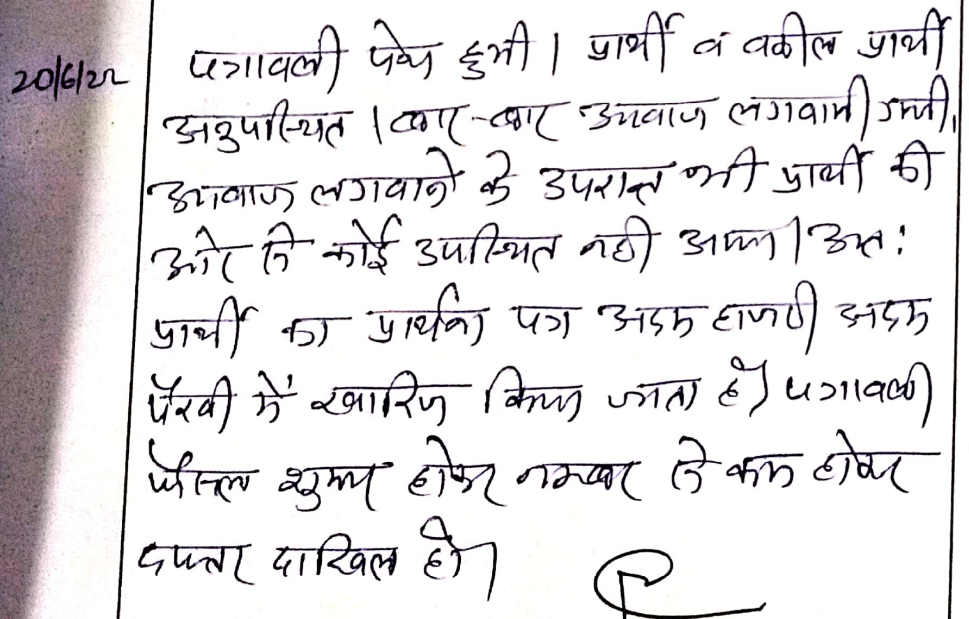 20/6/22 पत्रावली पेश हुयी। प्रार्थी व वकील प्रार्थी
अनुपस्थित। बार-बार आवाज लगवायी गयी,
आवाज लगवाने के उपरान्त भी प्रार्थी की
ओर से कोई उपस्थित नही आया। अतः
प्रार्थी का प्रार्थना पत्र अदम हाजरी अदम
पैरवी में खारिज किया जाता है। पत्रावली
फैसल शुमार होकर नम्बर से कम होकर
दफ्तर दाखिल हो।